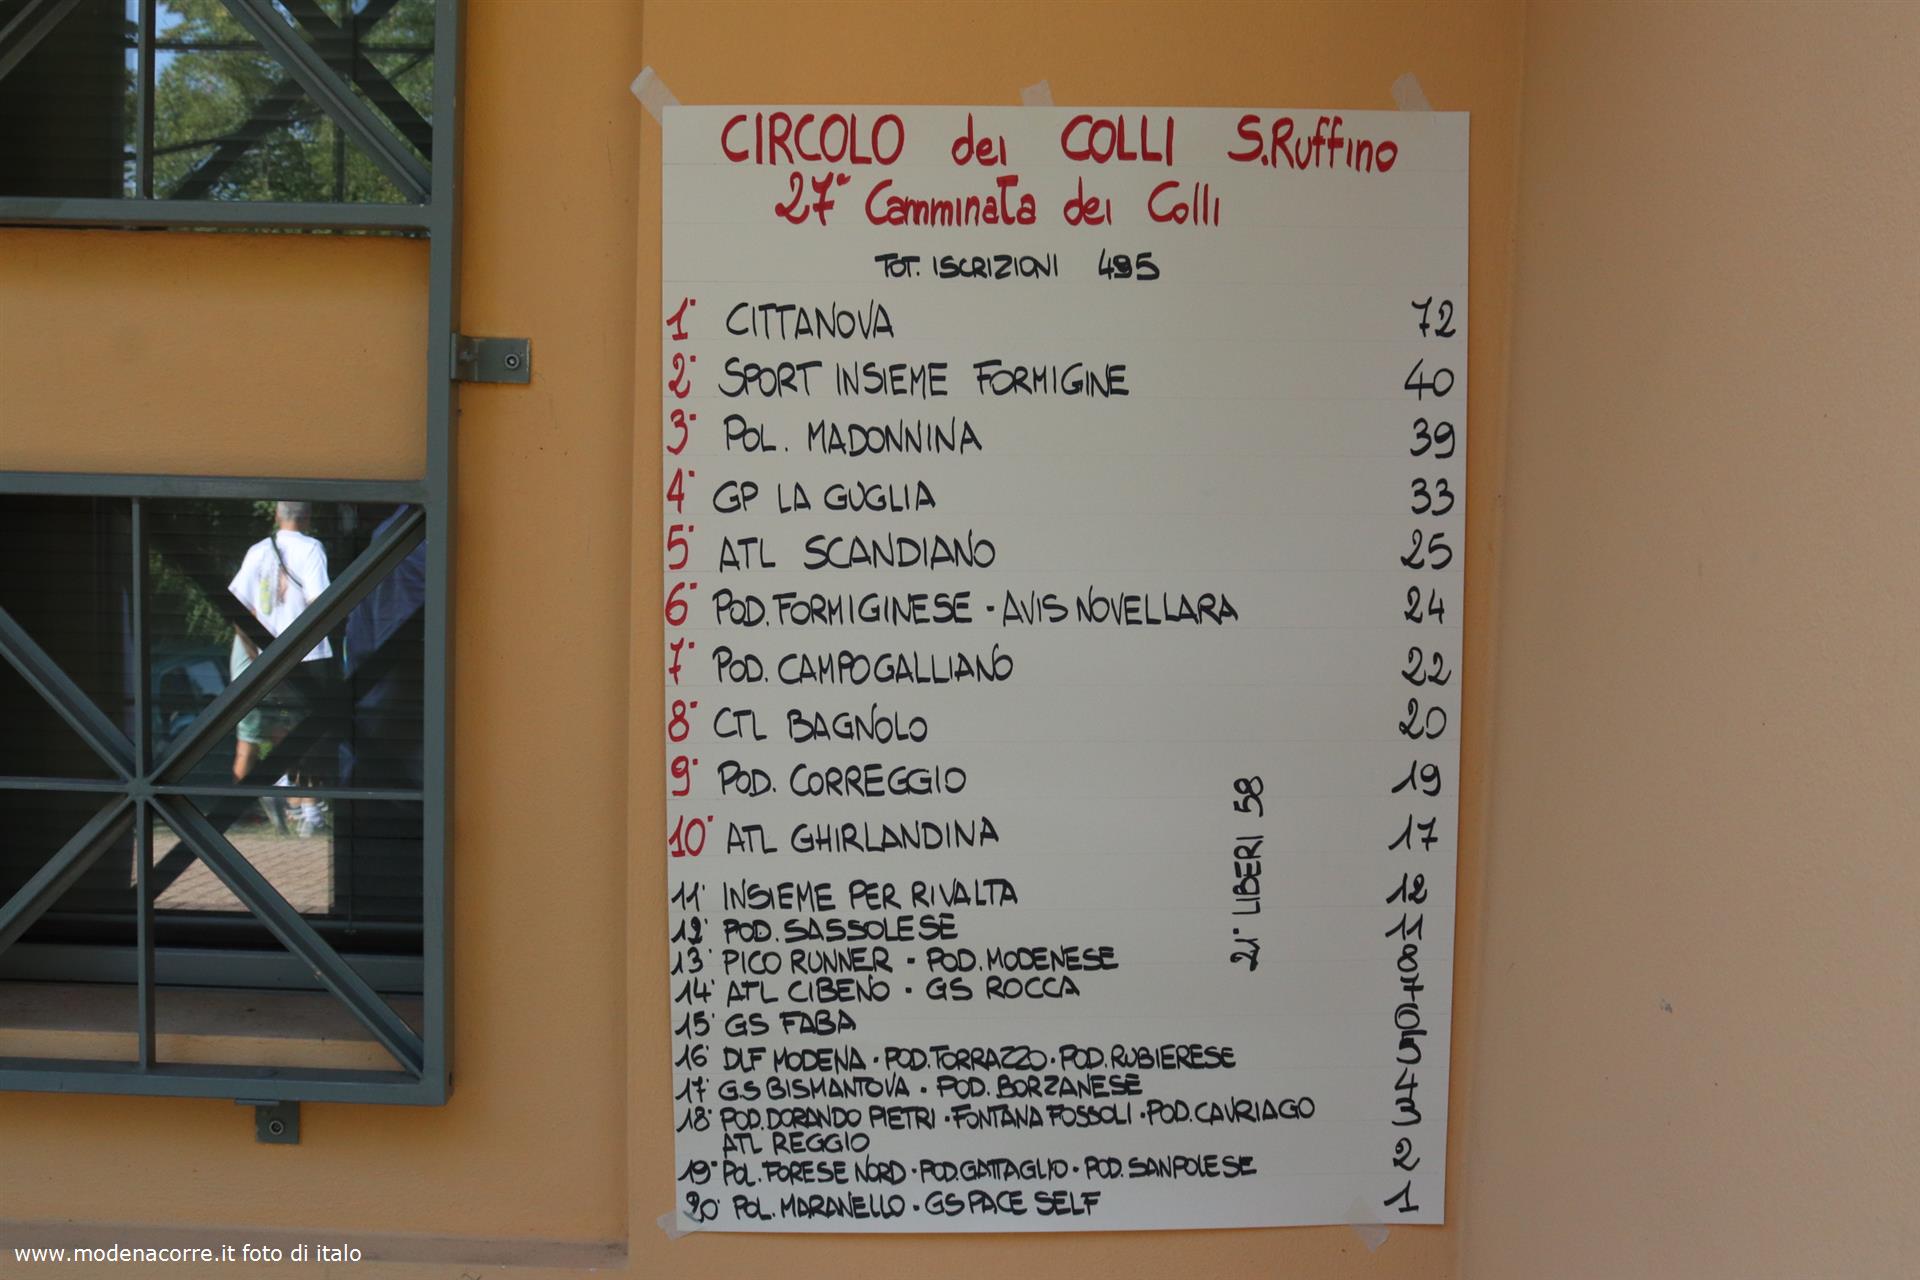 CIRCOLO dei COLLI S.Ruffino
27° Camminata dei Colli
TOT. ISCRIZIONI 495
1° CITTANOVA 72
2° SPORT INSIEME FORMIGINE 40
3° POL. MADONNINA 39
4° GP LA GUGLIA 33
5° ATL SCANDIANO 25
6° POD. FORMIGINESE - AVIS NOVELLARA 24
7° POD. CAMPOGALLIANO 22
8° CTL BAGNOLO 20
9° POD. CORREGGIO 19
10° ATL GHIRLANDINA 17
11° INSIEME PER RIVALTA 12
12° POD. SASSOLESE 11
13° PICO RUNNER - POD. MODENESE 8
14° ATL CIBENO - GS ROCCA 7
15° GS FABA 6
16° DLF MODENA - POD. TORRAZZO - POD. RUBIERESE 5
17° G.S BISMANTOVA - POD. BORZANESE 4
18° POD. DORANDO PIETRI - FONTANA FOSSOLI - POD. CAVRIAGO 3
ATL REGGIO
19° POL. FORESE NORD - POD. GATTAGLIO - POD. SANPOLESE 2
20° POL. MARANELLO - GS PACE SELF 1
21° LIBERI 58
www.modenacorre.it foto di italo